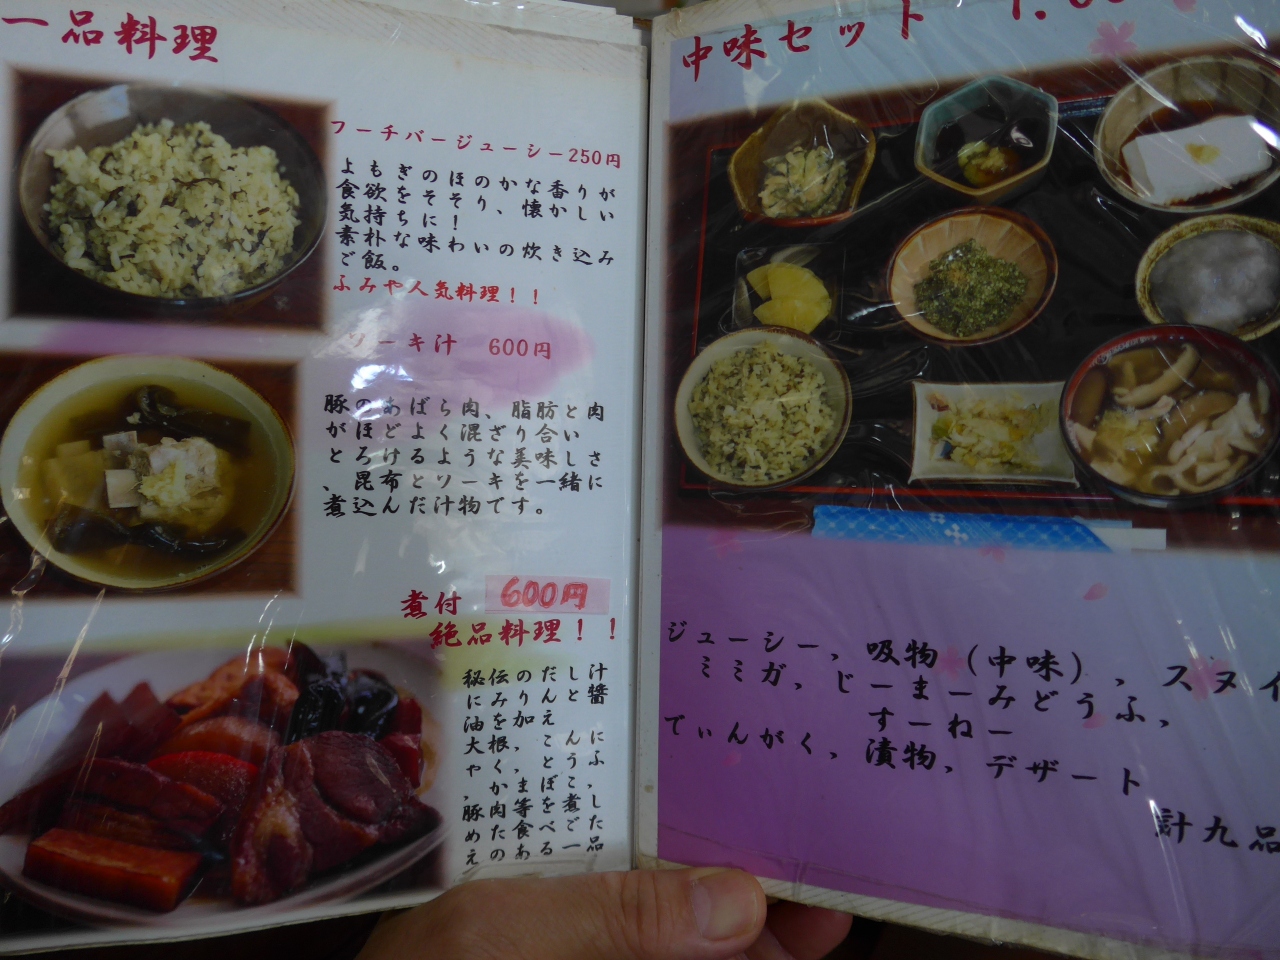 一品料理
フーチバージューシー250円
よもぎのほのかな香りが
食欲をそそり、懐かしい
気持ちに！
素朴な味わいの炊き込み
ご飯。
ふみや人気料理！！
ソーキ汁 600円
豚のあばら肉、脂肪と肉
がほどよく混ざり合い
とろけるような美味しさ
、昆布とソーキを一緒に
煮込んだ汁物です。
煮付 600円
絶品料理！！
秘伝のだし汁
にみりんと醤
油を加え
大根，こんに
ゃく，とうふ
，かまぼこ，
豚肉等を煮し
めた食べごた
えのある一品
中味セット
ジューシー，吸物（中味），スヌイ
ミミガ，じーまーみどうふ，
すーねー
てぃんがく，漬物，デザート
計九品